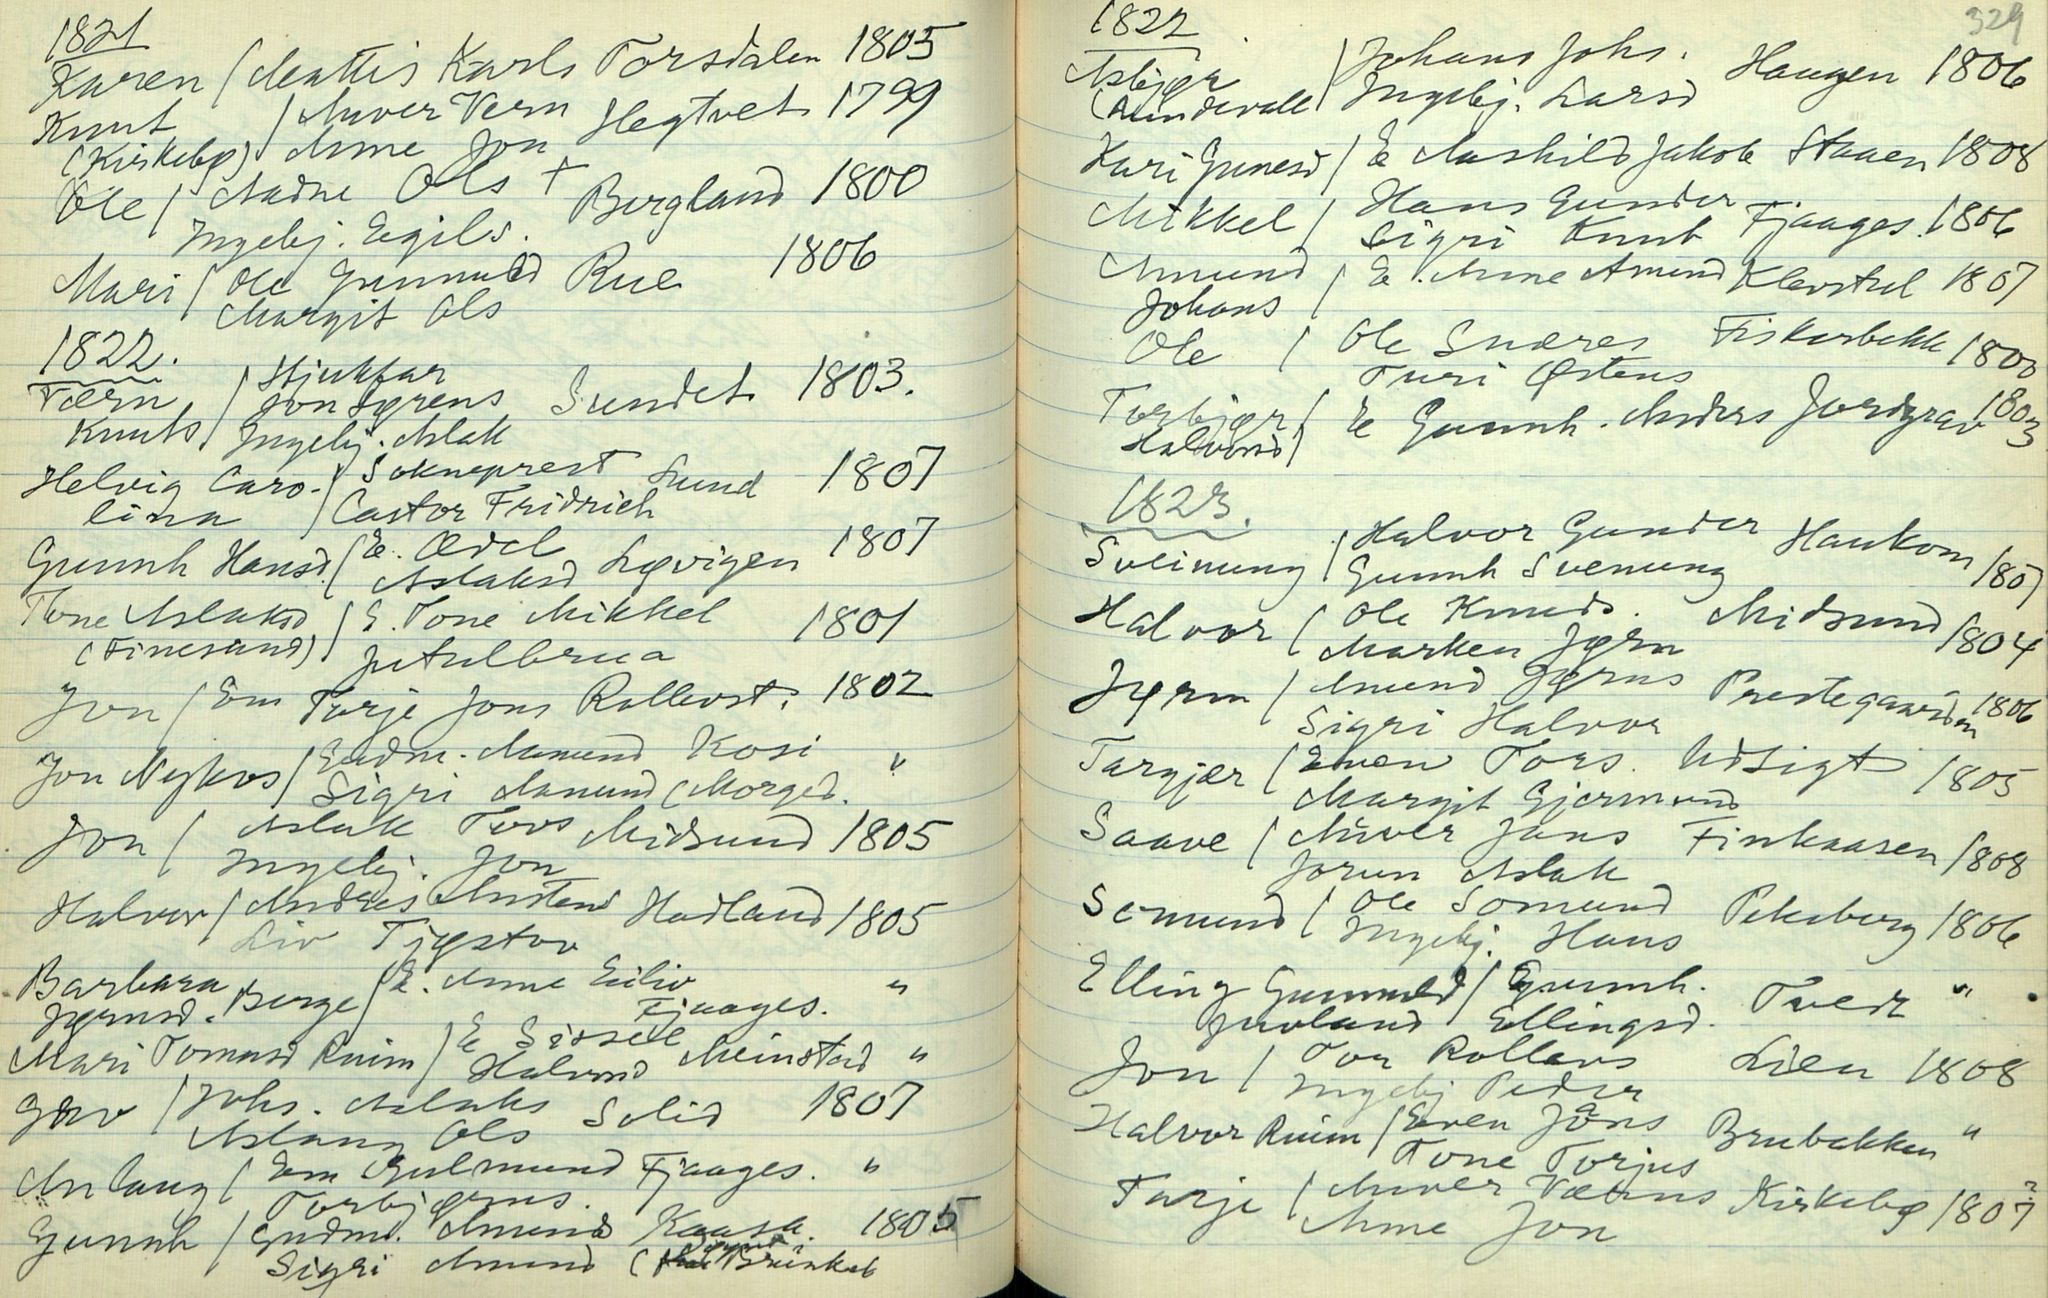 1821
Karen / Mattis Karls Torsdalen 1805
Knut / Auver Vern Hegtvet 1799
(Kirkebø) Anne Jon
Ole / Aadne Ols + Bergland 1800
Ingebj. Egils.
Mari / Ole Gunnuld Rue 1806
Margit Ols
1822.
Værn / Skjukkar
Jon Jørens Sundet 1803.
Knuts / Ingebj. Aslak
Helvig Caro- / Sokneprest Lund 1807
lina / Castor Fridrich
Gunnh Hansd. / E. Ædel Løvigen 1807
Aslaksd
Tone Aslaksd / E. Tone Mikkel 1801
(Finesund) Jutulbrua
Jon / Em Tarje Jons Rollevst. 1802
Jon Nykos / Gudm. Aamund Kosi "
Sigri Aamund (Morged.
Jon / Aslak Tovs Midsund 1805
Ingebj. Jon
Halvor / Andres Austend Hadland 1805
Liv Tjøstov
Barbara / E. Anne Eiliv "
Jørnsd. Berge Fjaages.
Mari Tomasd Ruim / E Sissel Meinstad "
Halvord
Gro / Johs. Aslaks Solid 1807
Aslaug Ols
Anlaug / Em Gulmund Fjaages. "
Torbjørns.
Gunnh / Gudm. Amund Kaasa. 1805
Sigri Amund ( Brunkeb
329
1822
Asbjør / Johans Johs. Haugen 1806
(Mindevall / Ingebj. Larsd
Kari Gunesd / E Aashild Jakob Staaen 1808
Mikkel / Hans Gunder Fjaages. 1806
Sigri Knut
Amund / E. Anne Amund Klevstul 1807
Johans
Ole / Ole Snæres Fiskerbekk 1800
Turi Østens
Torbjør / E Gunnh. Anders Jordgrav 1803
Halvord
1823.
Sveinung / Halvor Gunder Haukom 1807
Gunnh Svenung
Halvor / Ole Knuds. Midsund 1804
Marken Jørn
Jørn / Amund Jørns Prestegaarden 1806
Sigri Halvor
Targjær / Even Tors. Udsigt 1805
Margit Gjermund
Saave / Auver Jans Finkaasen 1808
Jorun Aslak
Somund / Ole Somund Peksberg 1806
Ingebj. Hans
Elling Gunnuld / Gunnh. Tvedt "
Juvland Ellingsd.
Jon / Tor Rollevs Lien 1808
Ingebj Peder
Halvor Ruim / Even Jøns Brubakken "
Tone Torjus
Tarje / Auver Værns Kirkebø 1807 ?
Anne Jon